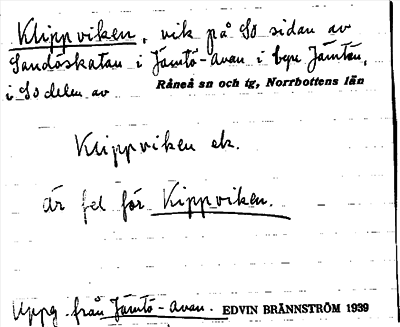 Klippviken, vik på SO sidan av
Sandöskatan i Jämtö-avan i byn Jämtön,
i SO delen av Råneå sn och tg, Norrbottens län
Klippviken ek.
är fel för Kippviken.
Uppg. från Jämtö-avan. EDVIN BRÄNNSTRÖM 1939